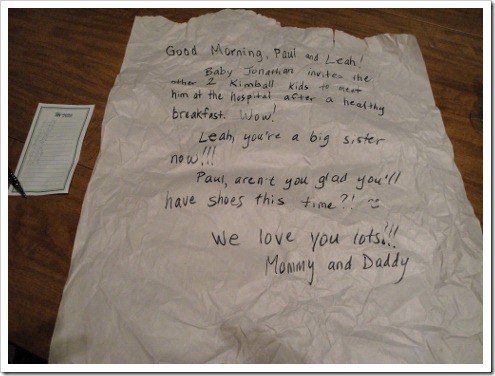 Good Morning, Paul and Leah!
Baby Jonathan invites the
other 2 Kimball kids to meet
him at the hospital after a healthy
breakfast. Wow!
Leah, you're a big sister
now!!!
Paul, aren't you glad you'll
have shoes this time?!
We love you lots!!!
Mommy and Daddy